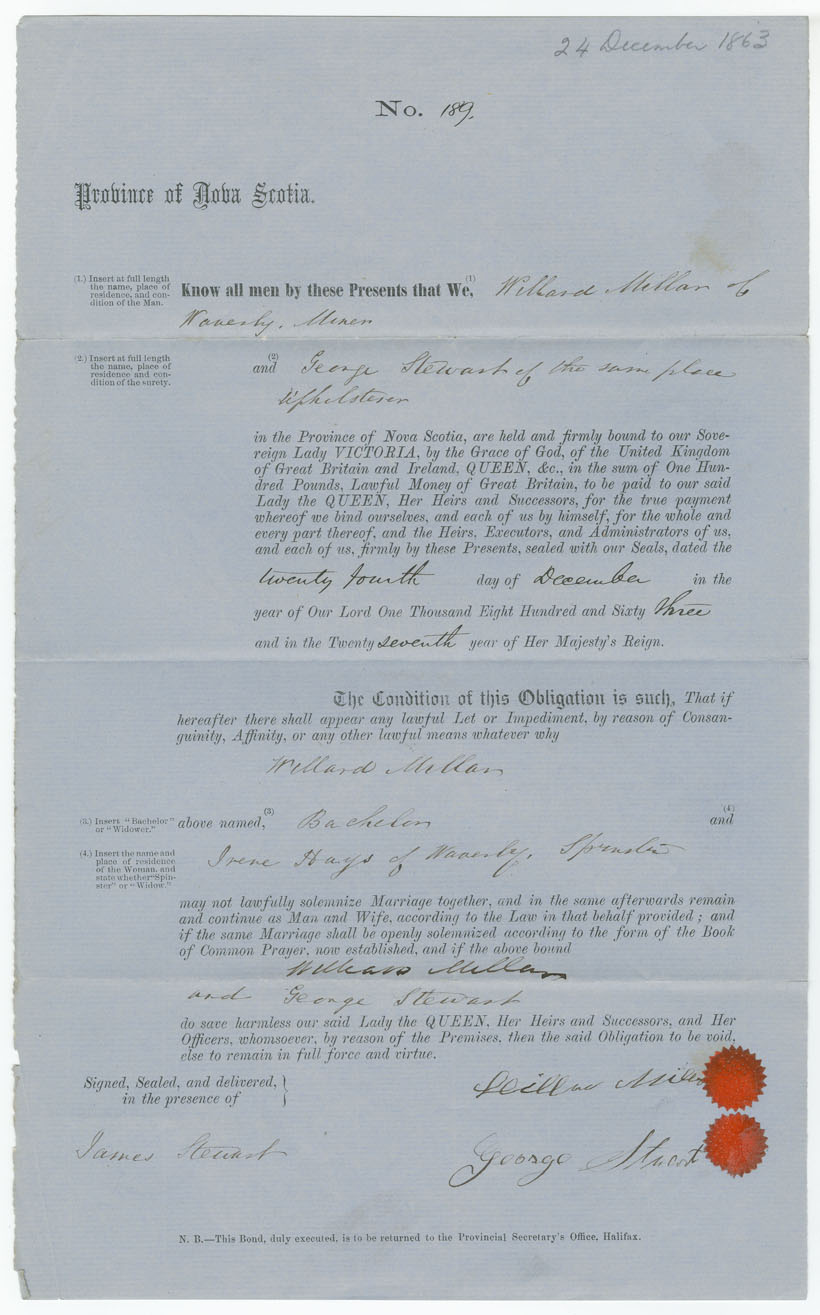 24 December 1863
No. 189.
Province of Nova Scotia.
(1.) Insert at full length
the name, place of
residence, and con-
dition of the Man.
Know all men by these Presents that We, (1) Willard Millar of
Waverly, Miner
(2.) Insert at full length
the name, place of
residence and con-
dition of the surety.
and (2) George Stewart of the same place
Upholsterer
in the Province of Nova Scotia, are held and firmly bound to our Sove-
reign Lady VICTORIA, by the Grace of God, of the United Kingdom
of Great Britain and Ireland, QUEEN, &c., in the sum of One Hun-
dred Pounds, Lawful Money of Great Britain, to be paid to our said
Lady the QUEEN, Her Heirs and Successors, for the true payment
whereof we bind ourselves, and each of us by himself, for the whole and
every part thereof, and the Heirs, Executors, and Administrators of us,
and each of us, firmly by these Presents, sealed with our Seals, dated the
twenty fourth day of December in the
year of Our Lord One Thousand Eight Hundred and Sixty three
and in the Twenty seventh year of Her Majesty's Reign.
The Condition of this Obligation is such, That if
hereafter there shall appear any lawful Let or Impediment, by reason of Consan-
guinity, Affinity, or any other lawful means whatever why
Willard Millar
(3.) Insert "Bachelor"
or "Widower."
above named, (3) Bachelor and (4)
(4.) Insert the name and
place of residence
of the Woman, and
state whether "Spin-
ster" or "Widow."
Irene Hays of Waverly, Spinster
may not lawfully solemnize Marriage together, and in the same afterwards remain
and continue as Man and Wife, according to the Law in that behalf provided; and
if the same Marriage shall be openly solemnized according to the form of the Book
of Common Prayer, now established, and if the above bound
Willard Millar
and George Stewart
do save harmless our said Lady the QUEEN, Her Heirs and Successors, and Her
Officers, whomsoever, by reason of the Premises, then the said Obligation to be void,
else to remain in full force and virtue.
Signed, Sealed, and delivered,
in the presence of
James Stewart
George Stuart
N. B.—This Bond, duly executed, is to be returned to the Provincial Secretary's Office, Halifax.